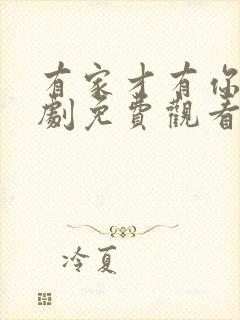 有家才有你
劇免費觀看
冷夏